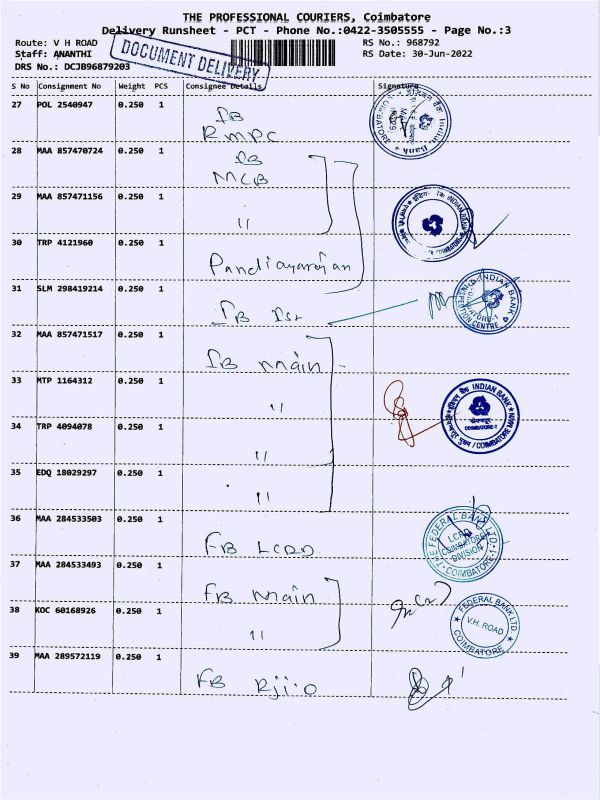 THE PROFESSIONAL COURIERS, Coimbatore
Delivery Runsheet - PCT - Phone No.:0422-3505555 - Page No.:3
Route: V H ROAD RS No.: 968792
Staff: ANANTHI RS Date: 30-Jun-2022
DRS No.: DCJB96879203
DOCUMENT DELIVERY
S No Consignment No Weight PCS Consignee Details Signature
27 POL 2540947 0.250 1 IB
RMPC
28 MAA 857470724 0.250 1 IB
MCB
29 MAA 857471156 0.250 1 "
30 TRP 4121960 0.250 1 Pandiyarajan
31 SLM 298419214 0.250 1 IB
INDIAN BANK
INSPECTION CENTRE
COIMBATORE-1
32 MAA 857471517 0.250 1 IB main
33 MTP 1164312 0.250 1 "
INDIAN BANK
COIMBATORE-1
COIMBATORE MAIN
34 TRP 4094078 0.250 1 "
35 EDQ 18029297 0.250 1 "
36 MAA 284533503 0.250 1 FB LCRD
THE FEDERAL BANK LTD.
LCRD
COIMBATORE
DIVISION
COIMBATORE-1
37 MAA 284533493 0.250 1 FB Main
38 KOC 60168926 0.250 1 "
FEDERAL BANK LTD.
V.H. ROAD
COIMBATORE
39 MAA 289572119 0.250 1 FB